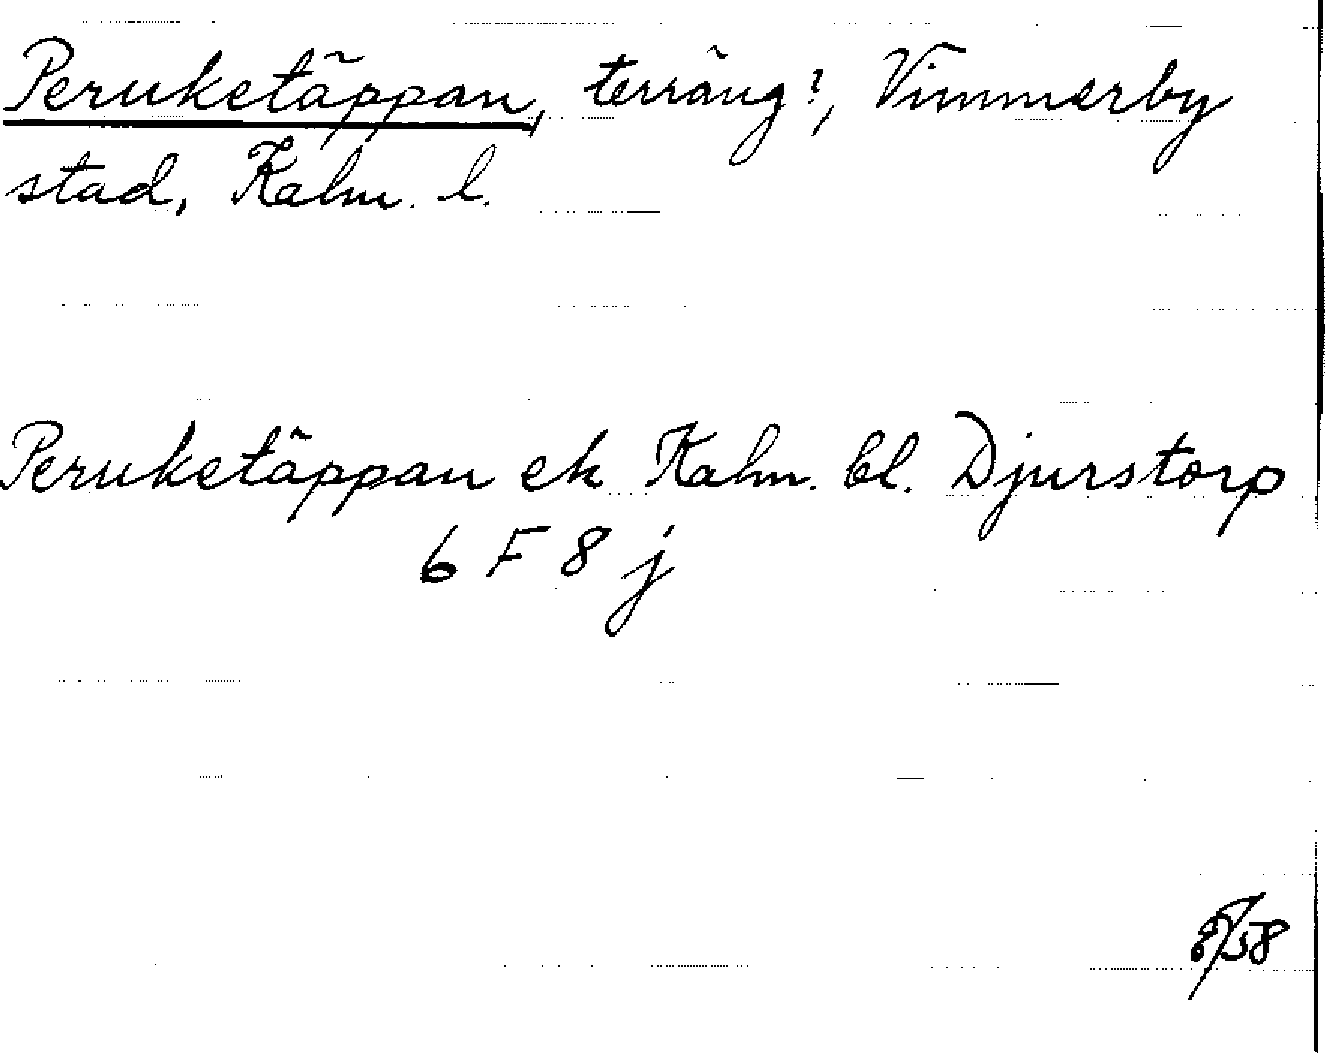 Peruketäppan, terräng?, Vimmerby
stad, Kalm. l.
Peruketäppan ek Kalm. bl. Djurstorp
6 F 8 j